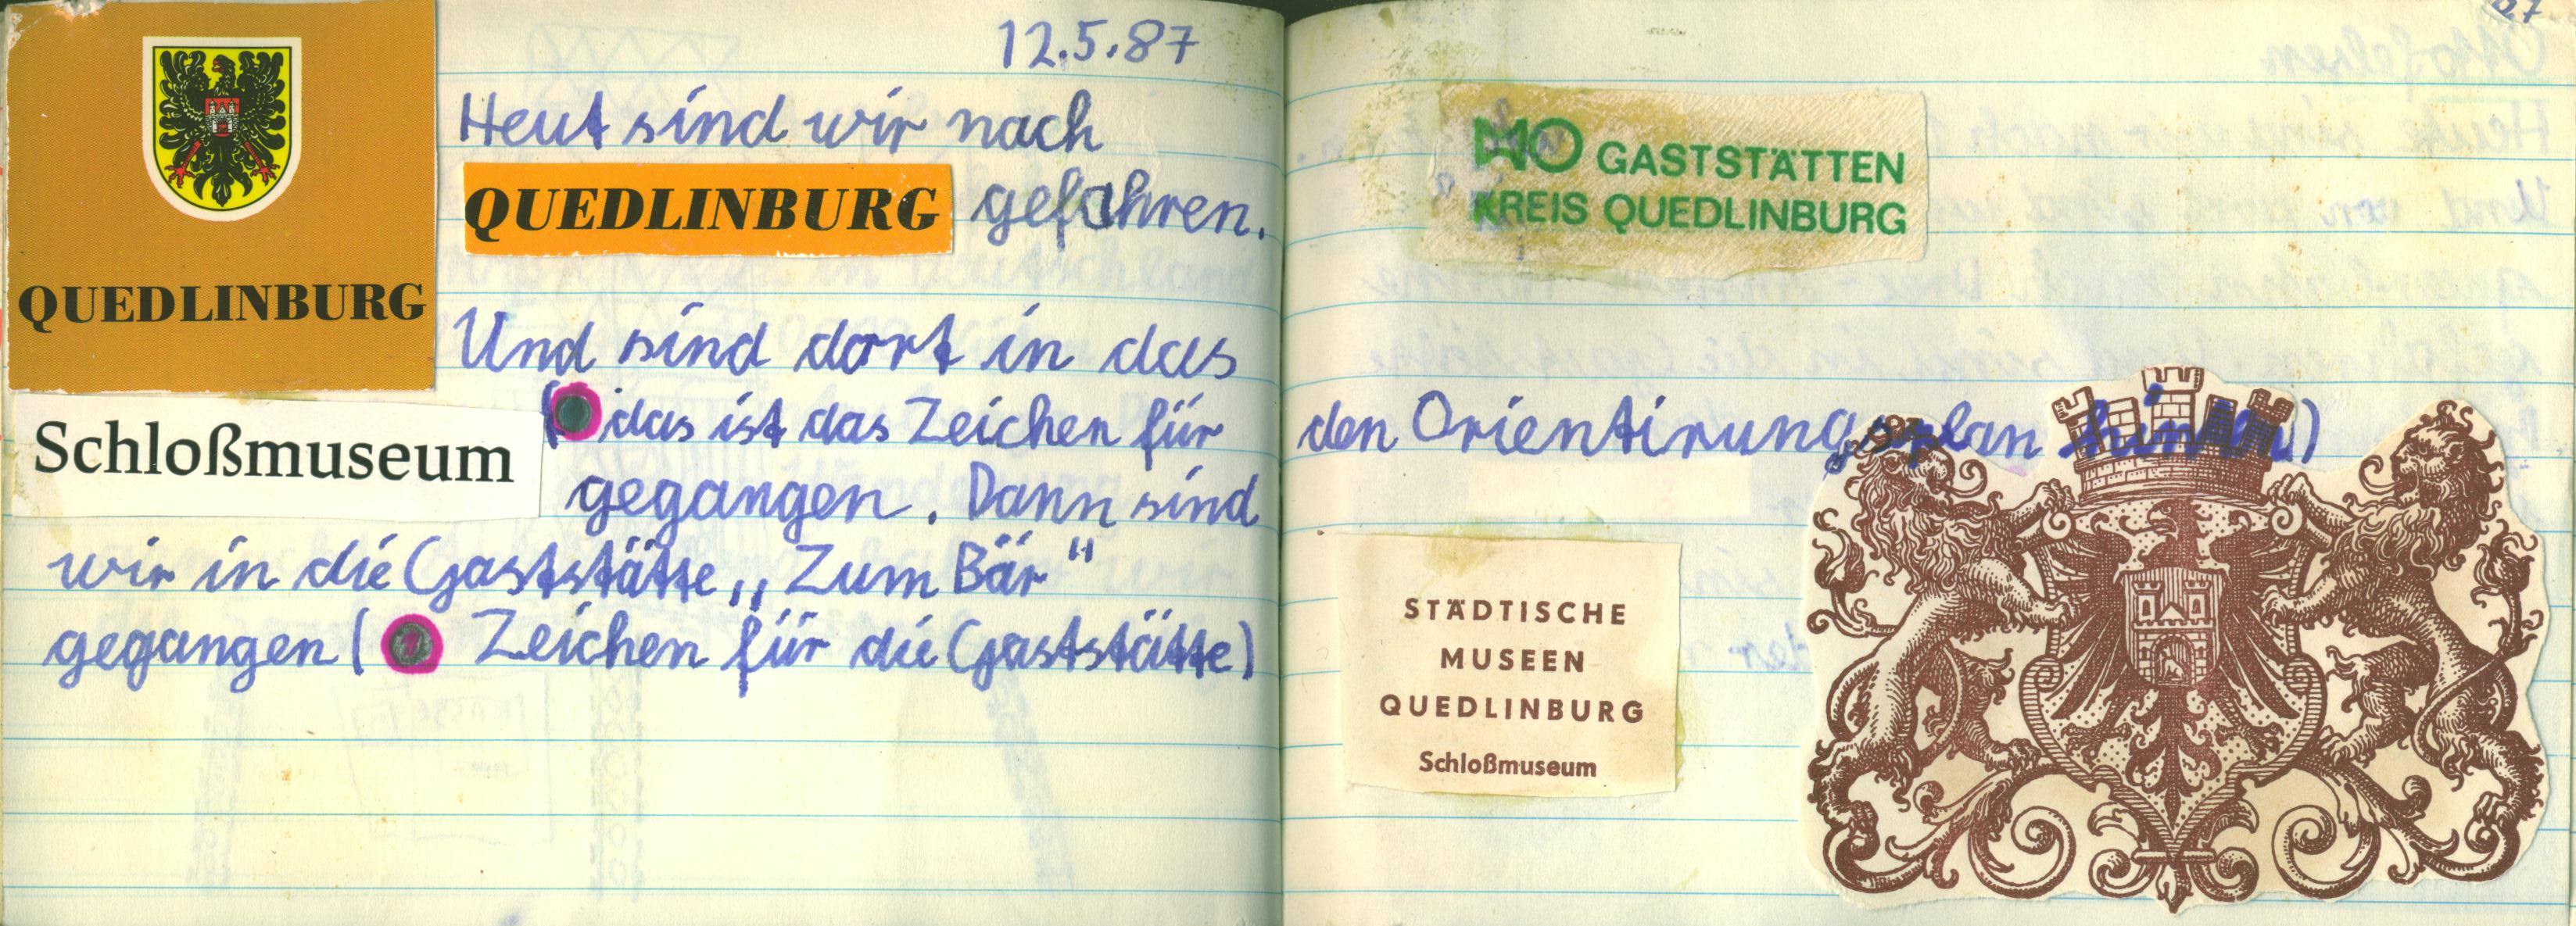 12.5.87
QUEDLINBURG
Heut sind wir nach
QUEDLINBURG gefahren.
Und sind dort in das
Schloßmuseum
(das ist das Zeichen für den Orientirungsplan hinten)
gegangen. Dann sind
wir in die Gaststätte „Zum Bär“
gegangen ( Zeichen für die Gaststätte)
HO GASTSTÄTTEN
KREIS QUEDLINBURG
STÄDTISCHE
MUSEEN
QUEDLINBURG
Schloßmuseum